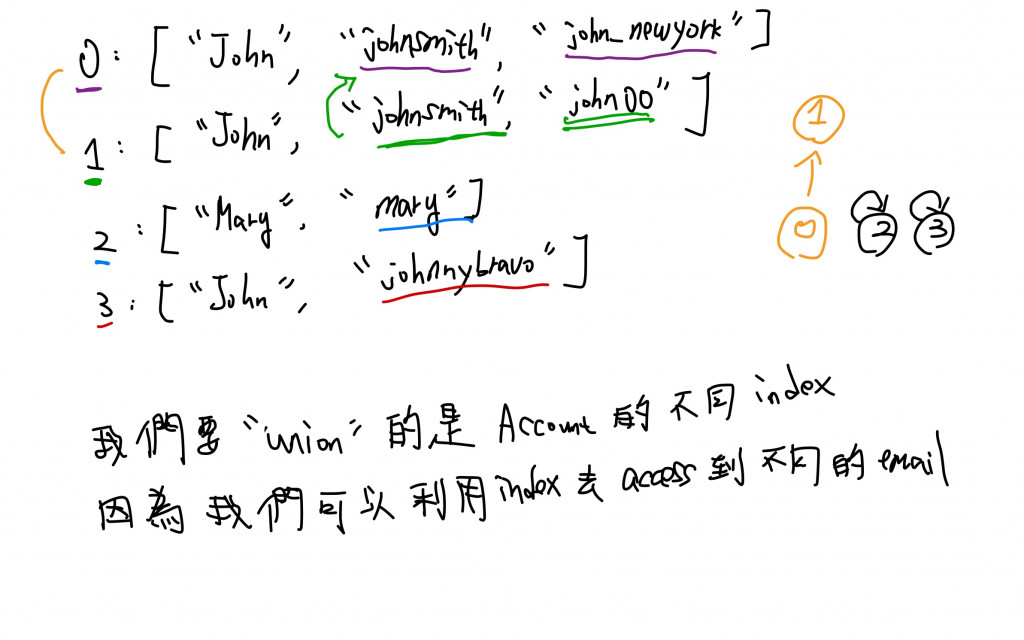 0: ["John", "johnsmith", "john_newyork"]
1: ["John", "johnsmith", "john00"]
2: ["Mary", "mary"]
3: ["John", "johnnybravo"]
1
0 2 3
我們要"union"的是 Account 的不同 index
因為我們可以利用index去access到不同的email